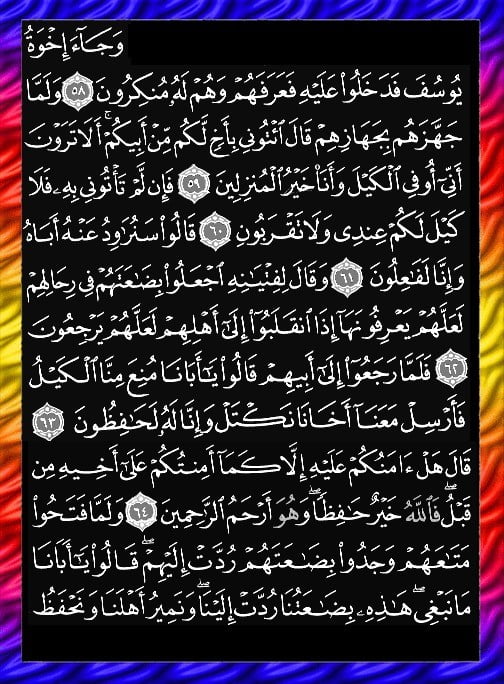 وَجَآءَ إِخْوَةُ
يُوسُفَ فَدَخَلُوا۟ عَلَيْهِ فَعَرَفَهُمْ وَهُمْ لَهُۥ مُنكِرُونَ ٥٨ وَلَمَّا
جَهَّزَهُم بِجَهَازِهِمْ قَالَ ٱئْتُونِى بِأَخٍ لَّكُم مِّنْ أَبِيكُمْ ۚ أَلَا تَرَوْنَ
أَنِّىٓ أُوفِى ٱلْكَيْلَ وَأَنَا۠ خَيْرُ ٱلْمُنزِلِينَ ٥٩ فَإِن لَّمْ تَأْتُونِى بِهِۦ فَلَا
كَيْلَ لَكُمْ عِندِى وَلَا تَقْرَبُونِ ٦٠ قَالُوا۟ سَنُرَٰوِدُ عَنْهُ أَبَاهُ
وَإِنَّا لَفَٰعِلُونَ ٦١ وَقَالَ لِفِتْيَٰنِهِ ٱجْعَلُوا۟ بِضَٰعَتَهُمْ فِى رِحَالِهِمْ
لَعَلَّهُمْ يَعْرِفُونَهَآ إِذَا ٱنقَلَبُوٓا۟ إِلَىٰٓ أَهْلِهِمْ لَعَلَّهُمْ يَرْجِعُونَ
٦٢ فَلَمَّا رَجَعُوٓا۟ إِلَىٰٓ أَبِيهِمْ قَالُوا۟ يَٰٓأَبَانَا مُنِعَ مِنَّا ٱلْكَيْلُ
فَأَرْسِلْ مَعَنَآ أَخَانَا نَكْتَلْ وَإِنَّا لَهُۥ لَحَٰفِظُونَ ٦٣
قَالَ هَلْ ءَامَنُكُمْ عَلَيْهِ إِلَّا كَمَآ أَمِنتُكُمْ عَلَىٰٓ أَخِيهِ مِن
قَبْلُ ۖ فَٱللَّهُ خَيْرٌ حَٰفِظًا ۖ وَهُوَ أَرْحَمُ ٱلرَّٰحِمِينَ ٦٤ وَلَمَّا فَتَحُوا۟
مَتَٰعَهُمْ وَجَدُوا۟ بِضَٰعَتَهُمْ رُدَّتْ إِلَيْهِمْ ۖ قَالُوا۟ يَٰٓأَبَانَا
مَا نَبْغِى ۖ هَٰذِهِۦ بِضَٰعَتُنَا رُدَّتْ إِلَيْنَا ۖ وَنَمِيرُ أَهْلَنَا وَنَحْفَظُ